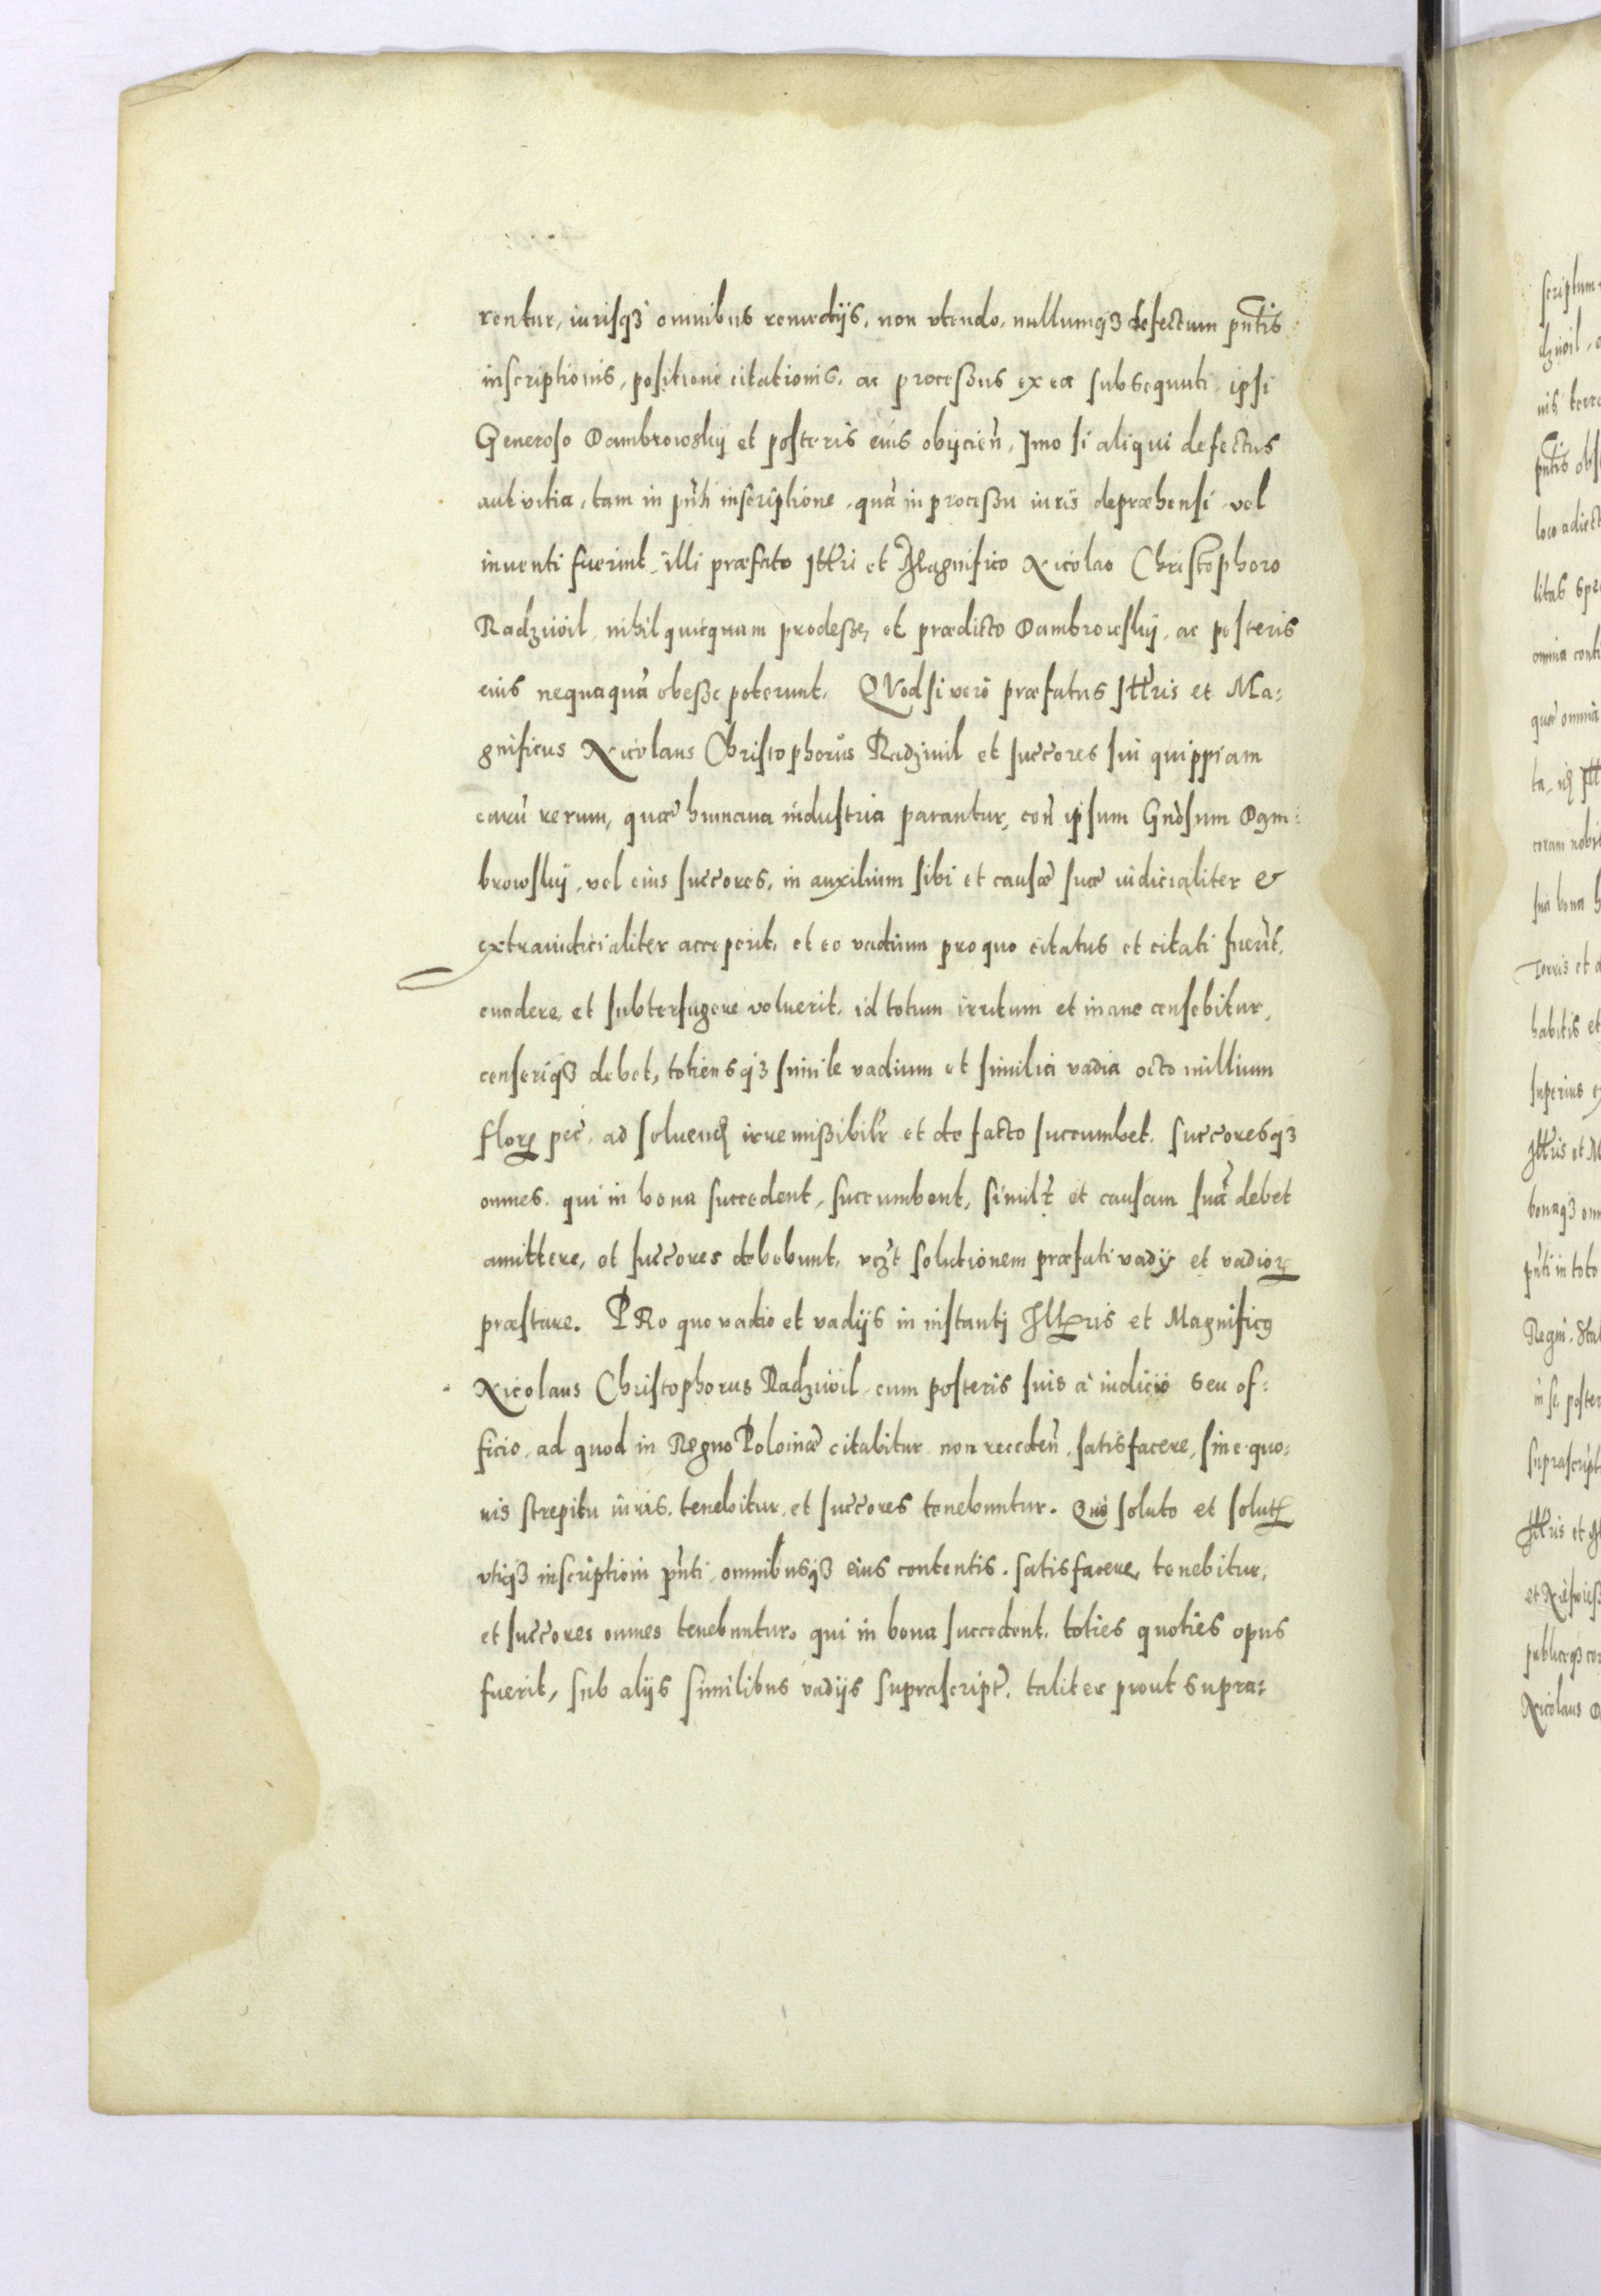 rentur, iurisqꝫ omnibus remedijs, non vtendo, nullumqꝫ defectum pn̄tis
inscriptionis, positione citationis, ac processus ex ea subsequuti, ipsi
Generoso Dambrowskij et posteris eius obijcien̄, Imo si aliqui defectus
aut vitia, tam in pn̄ti inscriptione, quā in processu iuris depraehensi vel
inuenti fuerint, illi praefato Illri et Magnifico Nicolao Christophoro
Radziwil, nihil quicquam prodesse, et praedicto Dambrowskij, ac posteris
eius nequaquā obesse poterunt. QVod si vero praefatus Illris et Ma:
gnificus Nicolaus Christophorus Radziuil et succores sui quippiam
earū rerum, quae humana industria parantur, con̄ ipsum Gnosum Dam:
browskij, vel eius succores, in auxilium sibi et causae suae iudicialiter &
extraiudicialiter acceperit, et eo vadium pro quo citatus et citati fuerīt,
euadere, et subterfugere voluerit, id totum irritum et inane censebitur,
censeriqꝫ debet, totiensqꝫ simile vadium et similia vadia octo millium
floꝝ pec̄, ad soluend irremissibilr et de facto succumbet, succoresqꝫ
omnes, qui in bona succedent, succumbent, similr et causam suā debet
amittere, et succores debebunt, vꝫt solutionem praefati vadij et vadioꝝ
praestare. PRo quo vadio et vadijs in instanti Illris et Magnificꝯ
Nicolaus Christophorus Radziwil cum posteris suis à iudicio seu of:
ficio, ad quod in Regno Poloniae citabitur non receden̄, satisfacere, sine quo:
uis strepitu iuris, tenebitur, et succores tenebuntur. Quo soluto et solutꝭ
vtiqꝫ inscriptioni pn̄ti omnibusqꝫ eius contentis, satisfacere, tenebitur,
et succores omnes tenebuntur, qui in bona succedent, toties quoties opus
fuerit, sub alijs similibus vadijs suprascript̄, taliter prout supra:
scriptum
nis terra
pn̄tis obs
loco adiect
litas spe
omnia conti
quae omnia
coram nobi
sua bona h
Terris et a
habitis et
superius e
Illris et M
bonaqꝫ om
pn̄ti in toto
Regni, Sta
in se, poster
suprascript
Illris et M
publiceqꝫ co
Nicolaus D